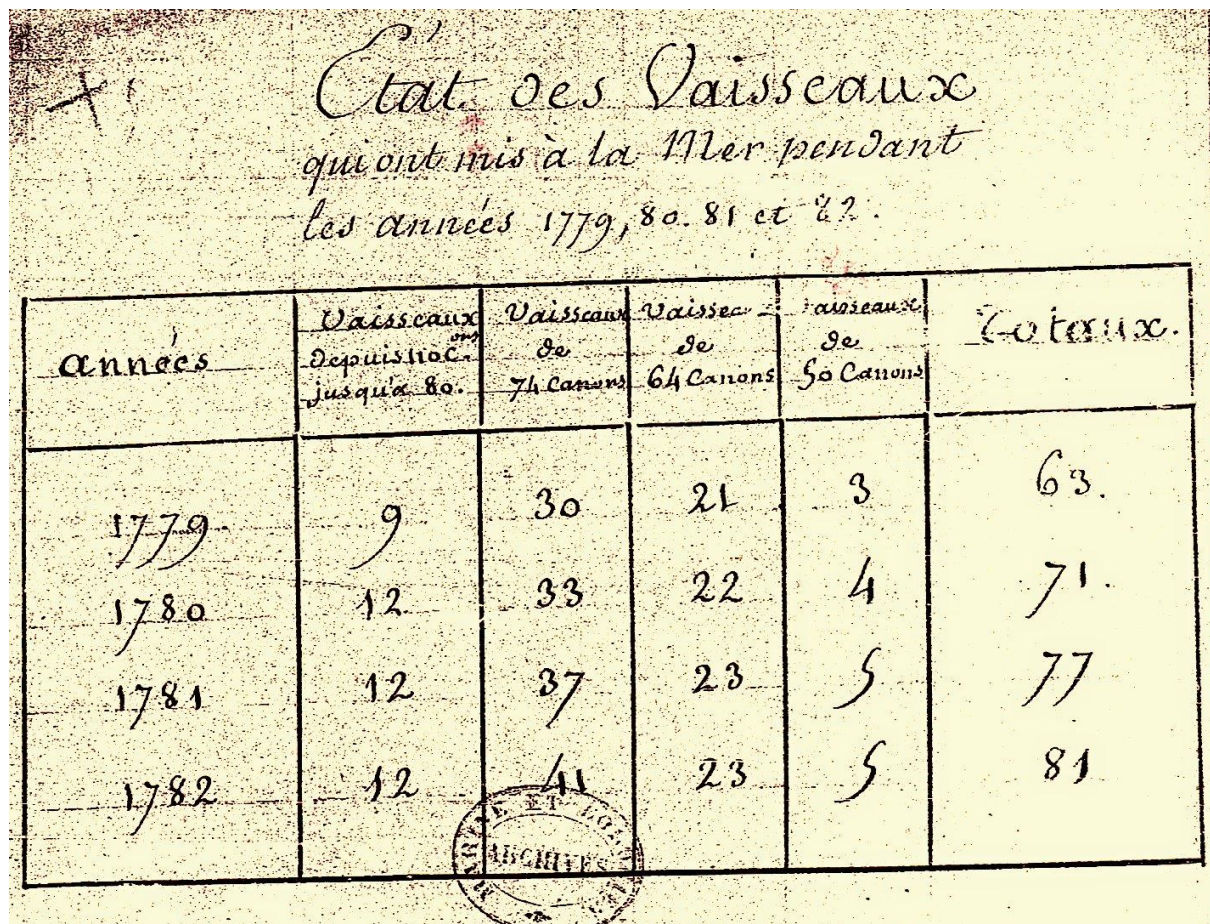 État des Vaisseaux
qui ont mis à la Mer pendant
les années 1779, 80. 81 et 82.
années Vaisseaux depuis 110 C.ons jusqu'à 80. Vaisseaux de 74 Canons Vaisseaux de 64 Canons Vaisseaux de 50 Canons Totaux.
1779. 9 30 21 3 63.
1780 12 33 22 4 71.
1781 12 37 23 5 77
1782 12 41 23 5 81
MARINE ET
ARCHIVES